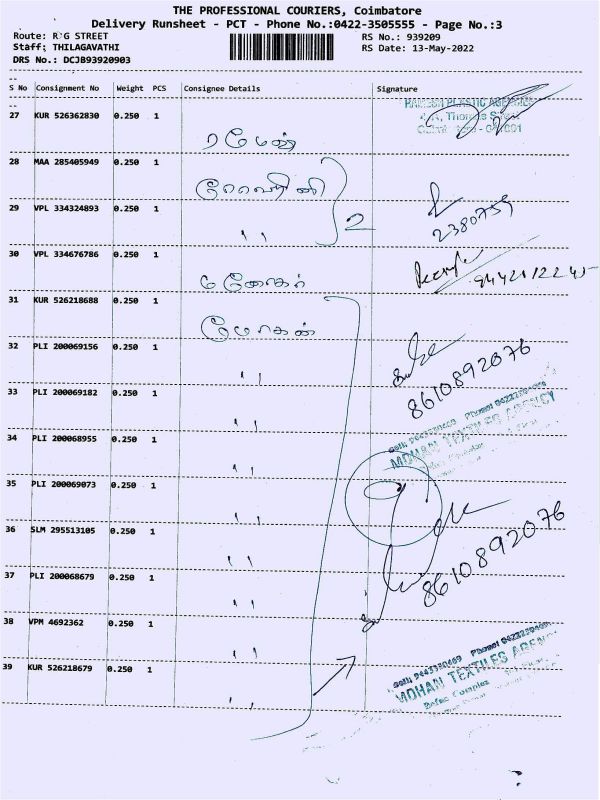 THE PROFESSIONAL COURIERS, Coimbatore
Delivery Runsheet - PCT - Phone No.:0422-3505555 - Page No.:3
Route: R G STREET
RS No.: 939209
Staff: THILAGAVATHI
RS Date: 13-May-2022
DRS No.: DCJB93920903
S No Consignment No Weight PCS Consignee Details Signature
27 KUR 526362830 0.250 1 ரமேஷ்
RAMESH PLASTIC AGENCIES
28 MAA 285405949 0.250 1
29 VPL 334324893 0.250 1 " 2
2380759
30 VPL 334676786 0.250 1 மனோகர்
31 KUR 526218688 0.250 1 மோகன்
32 PLI 200069156 0.250 1 "
8610892076
33 PLI 200069182 0.250 1 "
MOHAN TEXTILES AGENCY
34 PLI 200068955 0.250 1 "
35 PLI 200069073 0.250 1 "
36 SLM 295513105 0.250 1 "
8610892076
37 PLI 200068679 0.250 1 "
38 VPM 4692362 0.250 1 "
39 KUR 526218679 0.250 1 "
MOHAN TEXTILES AGENCY